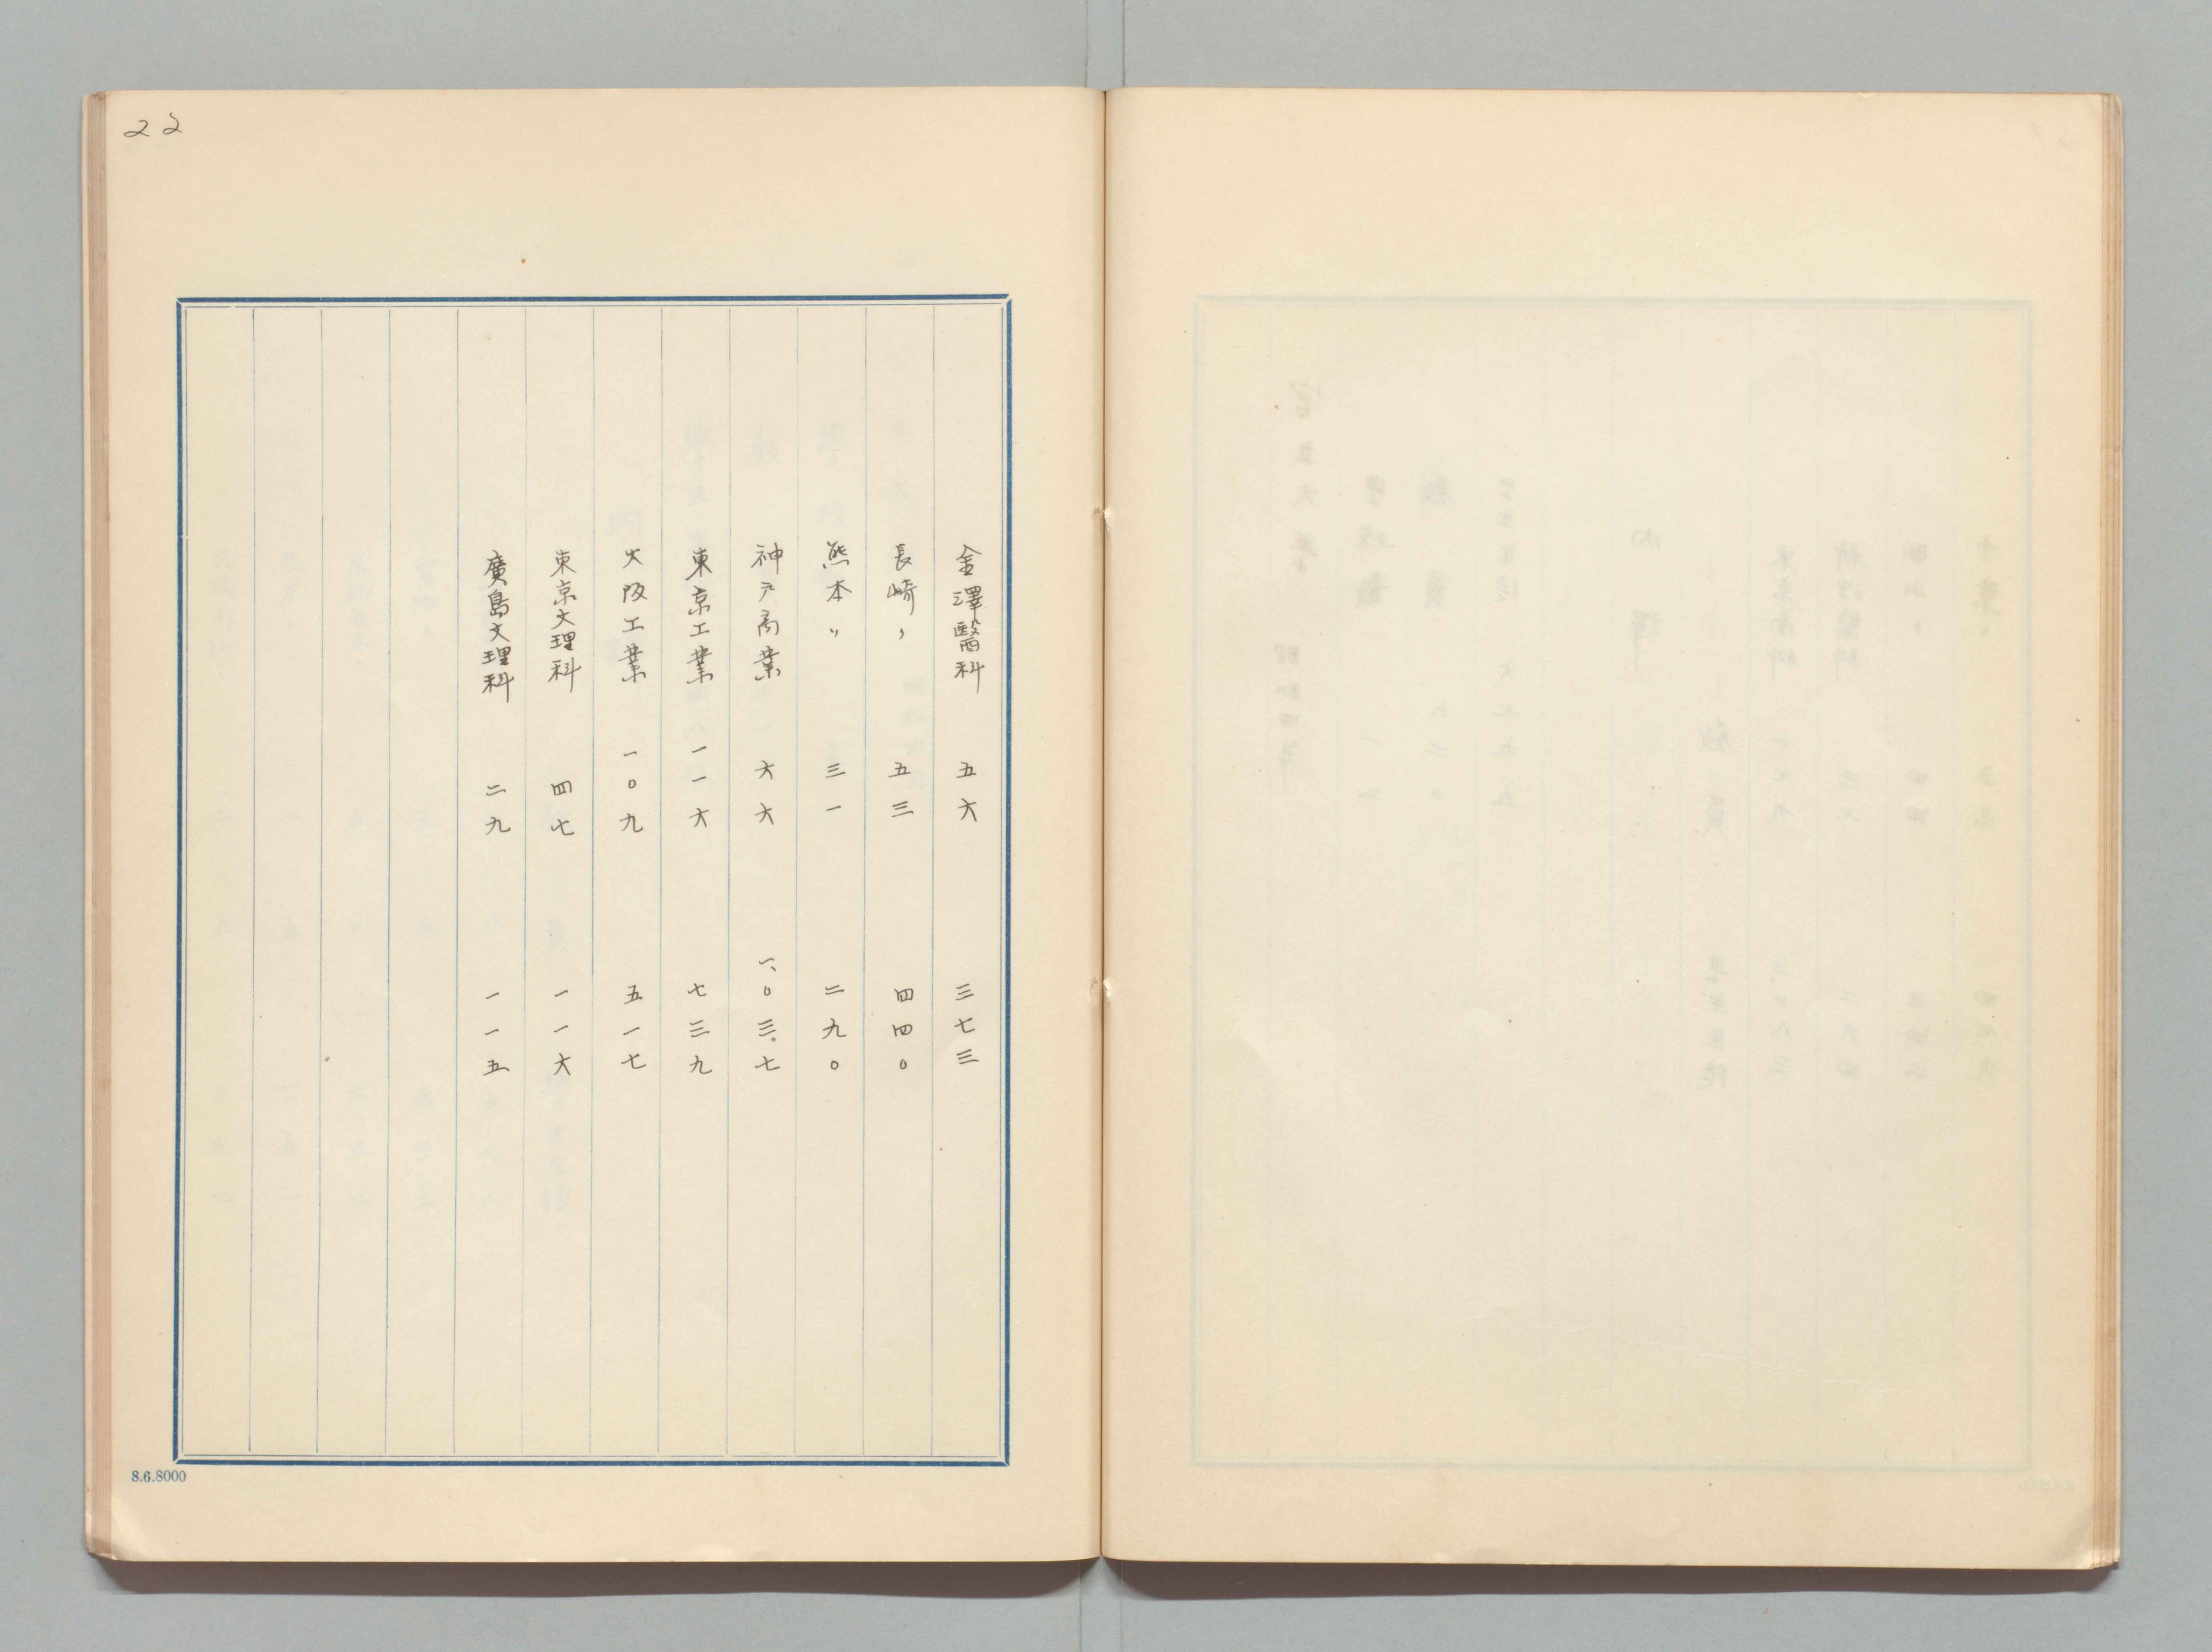 22
金澤醫科 五六 三七三
長崎〃 五三 四四〇
熊本〃 三一 二九〇
神戸商業 六六 一、〇三七
東京工業 一一六 七三九
大阪工業 一〇九 五一七
東京文理科 四七 一一六
廣島文理科 二九 一一五
8.6.8000